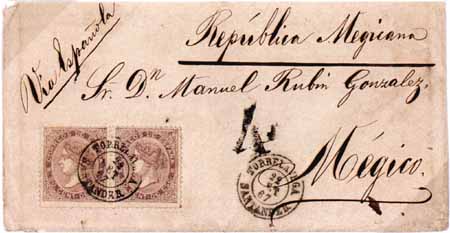 Via Española
República Megicana
Sr. Dn. Manuel Rubin Gonzalez,
4
Mégico.
TORRELAVEGA
SANTANDER
TORRELAVEGA
SANTANDER
67